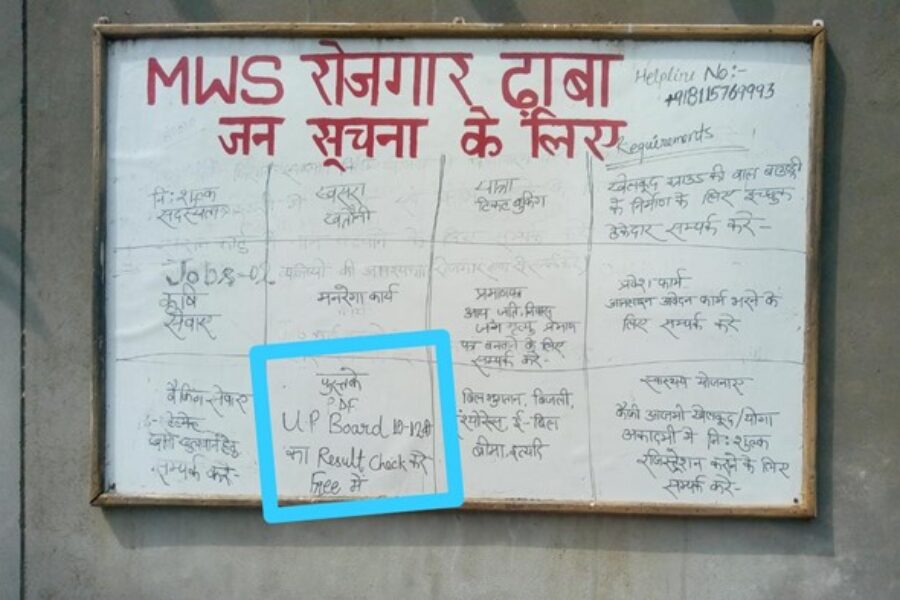 MWS रोजगार ढ़ाबा
जन सूचना के लिए
Helpline No:-
+918115769993
Requirements
नि:शुल्क
सदस्यता
खसरा
खतौनी
यात्रा
टिकट बुकिंग
खेलकूद ग्राउंड की वाल बाउंड्री
के निर्माण के लिए इच्छुक
ठेकेदार सम्पर्क करे-
Jobs-02
कृषि
सेवाए
मनरेगा कार्य
प्रमाणपत्र
आय, जाति, निवास,
जन्म मृत्यु प्रमाण
पत्र बनवाने के लिए
सम्पर्क करे-
प्रवेश फार्म
आनलाइन आवेदन फार्म भरने के
लिए सम्पर्क करे
बैंकिंग सेवाए
खाता खुलवाने हेतु
सम्पर्क करे-
पुस्तके
PDF
U.P Board 10-12th
का Result Check करे
Free में
बिल भुगतान, बिजली,
ई-बिल
बीमा, इत्यादि
स्वास्थ्य योजनाए
कैफी आजमी खेलकूद/योगा
अकादमी में नि:शुल्क
रजिस्ट्रेशन कराने के लिए
सम्पर्क करे-